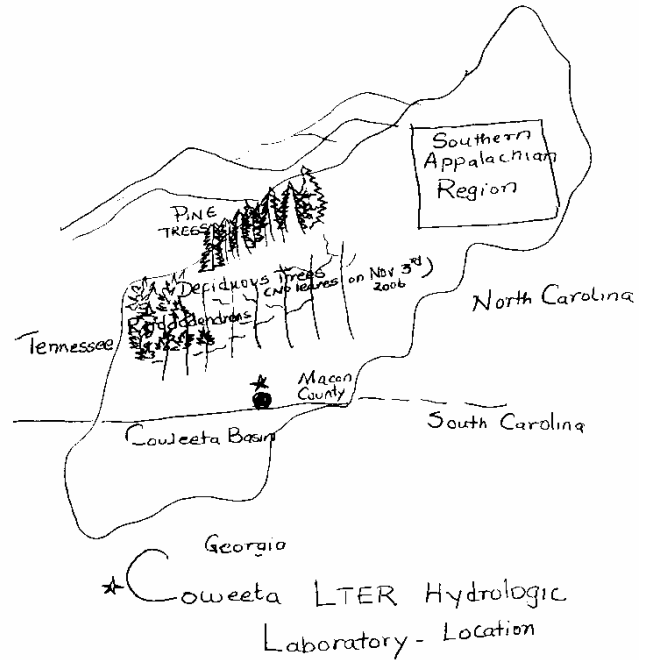 Southern
Appalachian
Region
PINE
TREES
Deciduous Trees
(No leaves on Nov 3rd)
2006
Rhododendrons
North Carolina
Tennessee
Macon
County
South Carolina
Coweeta Basin
Georgia
Coweeta LTER Hydrologic
Laboratory - Location